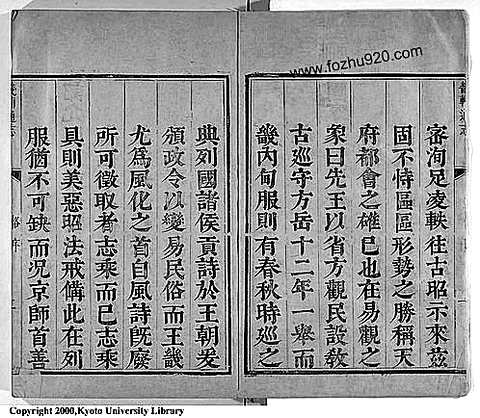 www.fozhu920.com
審洵足凌軼往古昭示來茲
固不恃區區形勢之勝稱天
府都會之雄已也在易觀之
象曰先王以省方觀民設敎
古巡守方岳十二年一舉而
畿內甸服則有春秋時巡之
典列國諸侯貢詩於王朝爰
頒政令以變易民俗而王畿
尤爲風化之首自風詩旣廢
所可徵取者志乘而已志乘
具則美惡昭法戒備此在列
服猶不可缺而况京師首善
Copyright 2000,Kyoto University Library